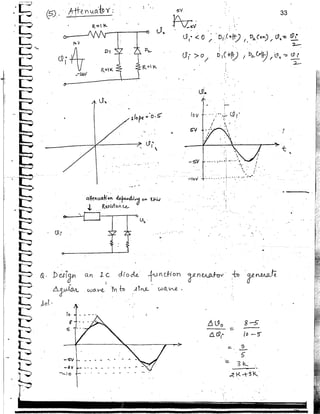 33
(5). Attenuator:
R=1K
10V
-10V
D1
D2
R=1K
R=1K
5V
-5V
Vi < 0, D1(off), D2(on), Vo = Vi/2
Vi > 0, D1(off), D2(on), Vo = Vi/2
Vo
slope = 0.5
Vi
Vo
10V
5V
-5V
-10V
Vi
t
attenuation depending on this
Resistance
Vi
Vo
Q. Design an 2C diode function generator to generate
Agular wave into sine wave.
Sol.
10
8
5
-5V
-8V
-10
ΔVo/ΔVi = 8-5/10-5
= 3/5
= 3K/2K+3K